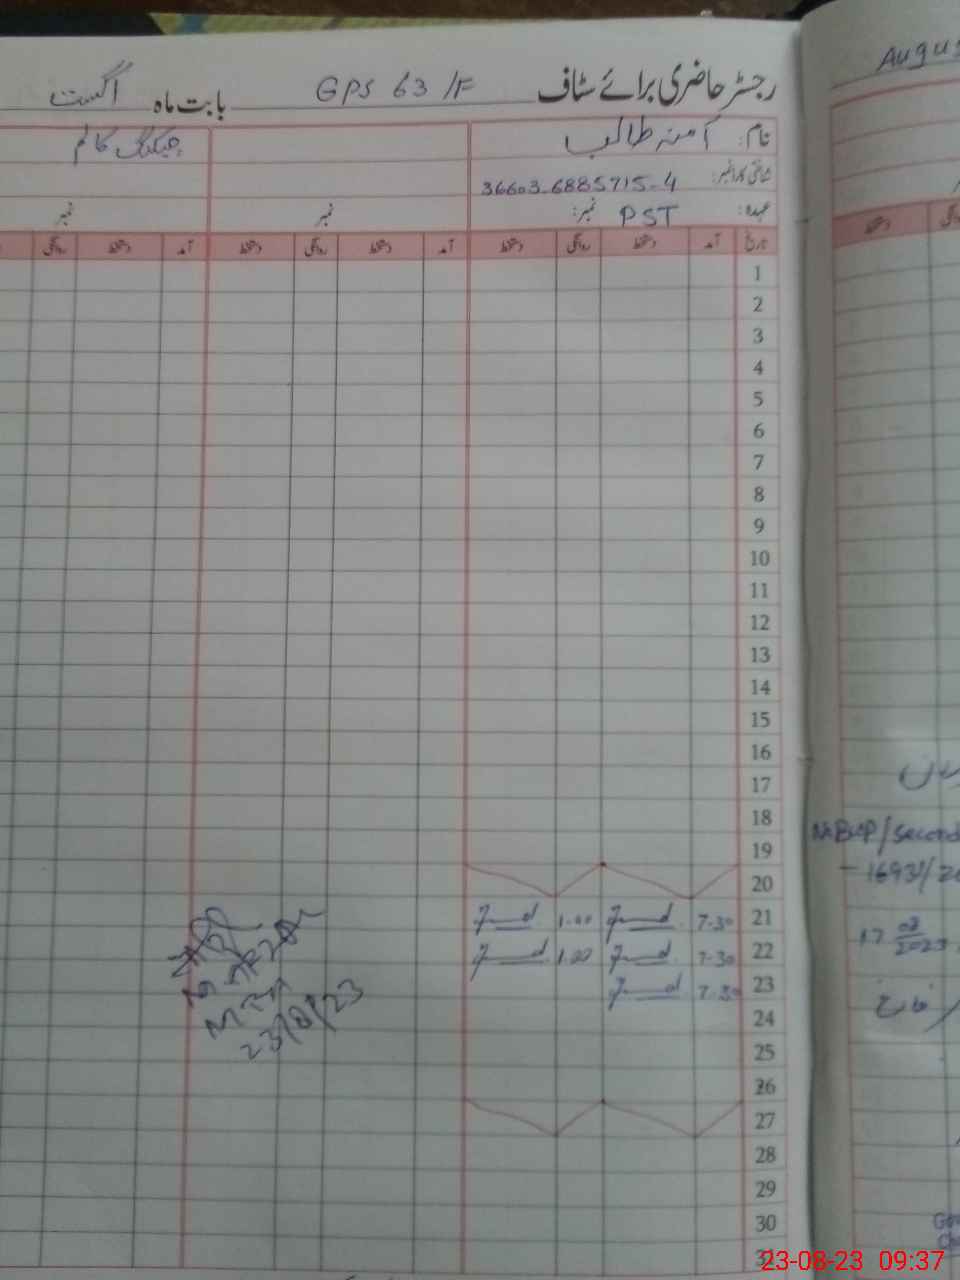 رجسٹر حاضری برائے سٹاف GPS 63/F بابت ماہ اگست
نام: آمنہ طالب
شناختی کارڈ نمبر: 36603-6885715-4
عہدہ: PST نمبر:
نمبر
نمبر
چیکنگ کالم
تاریخ آمد دستخط روانگی دستخط آمد دستخط روانگی دستخط آمد دستخط روانگی
1
2
3
4
5
6
7
8
9
10
11
12
13
14
15
16
17
18
19
20
21 7-30 1-00
22 7-30 1-00
23 7-30
24
25
26
27
28
29
30
31
23/8/23
Augus
دستخط
/Second
17 08/2023
23-08-23 09:37